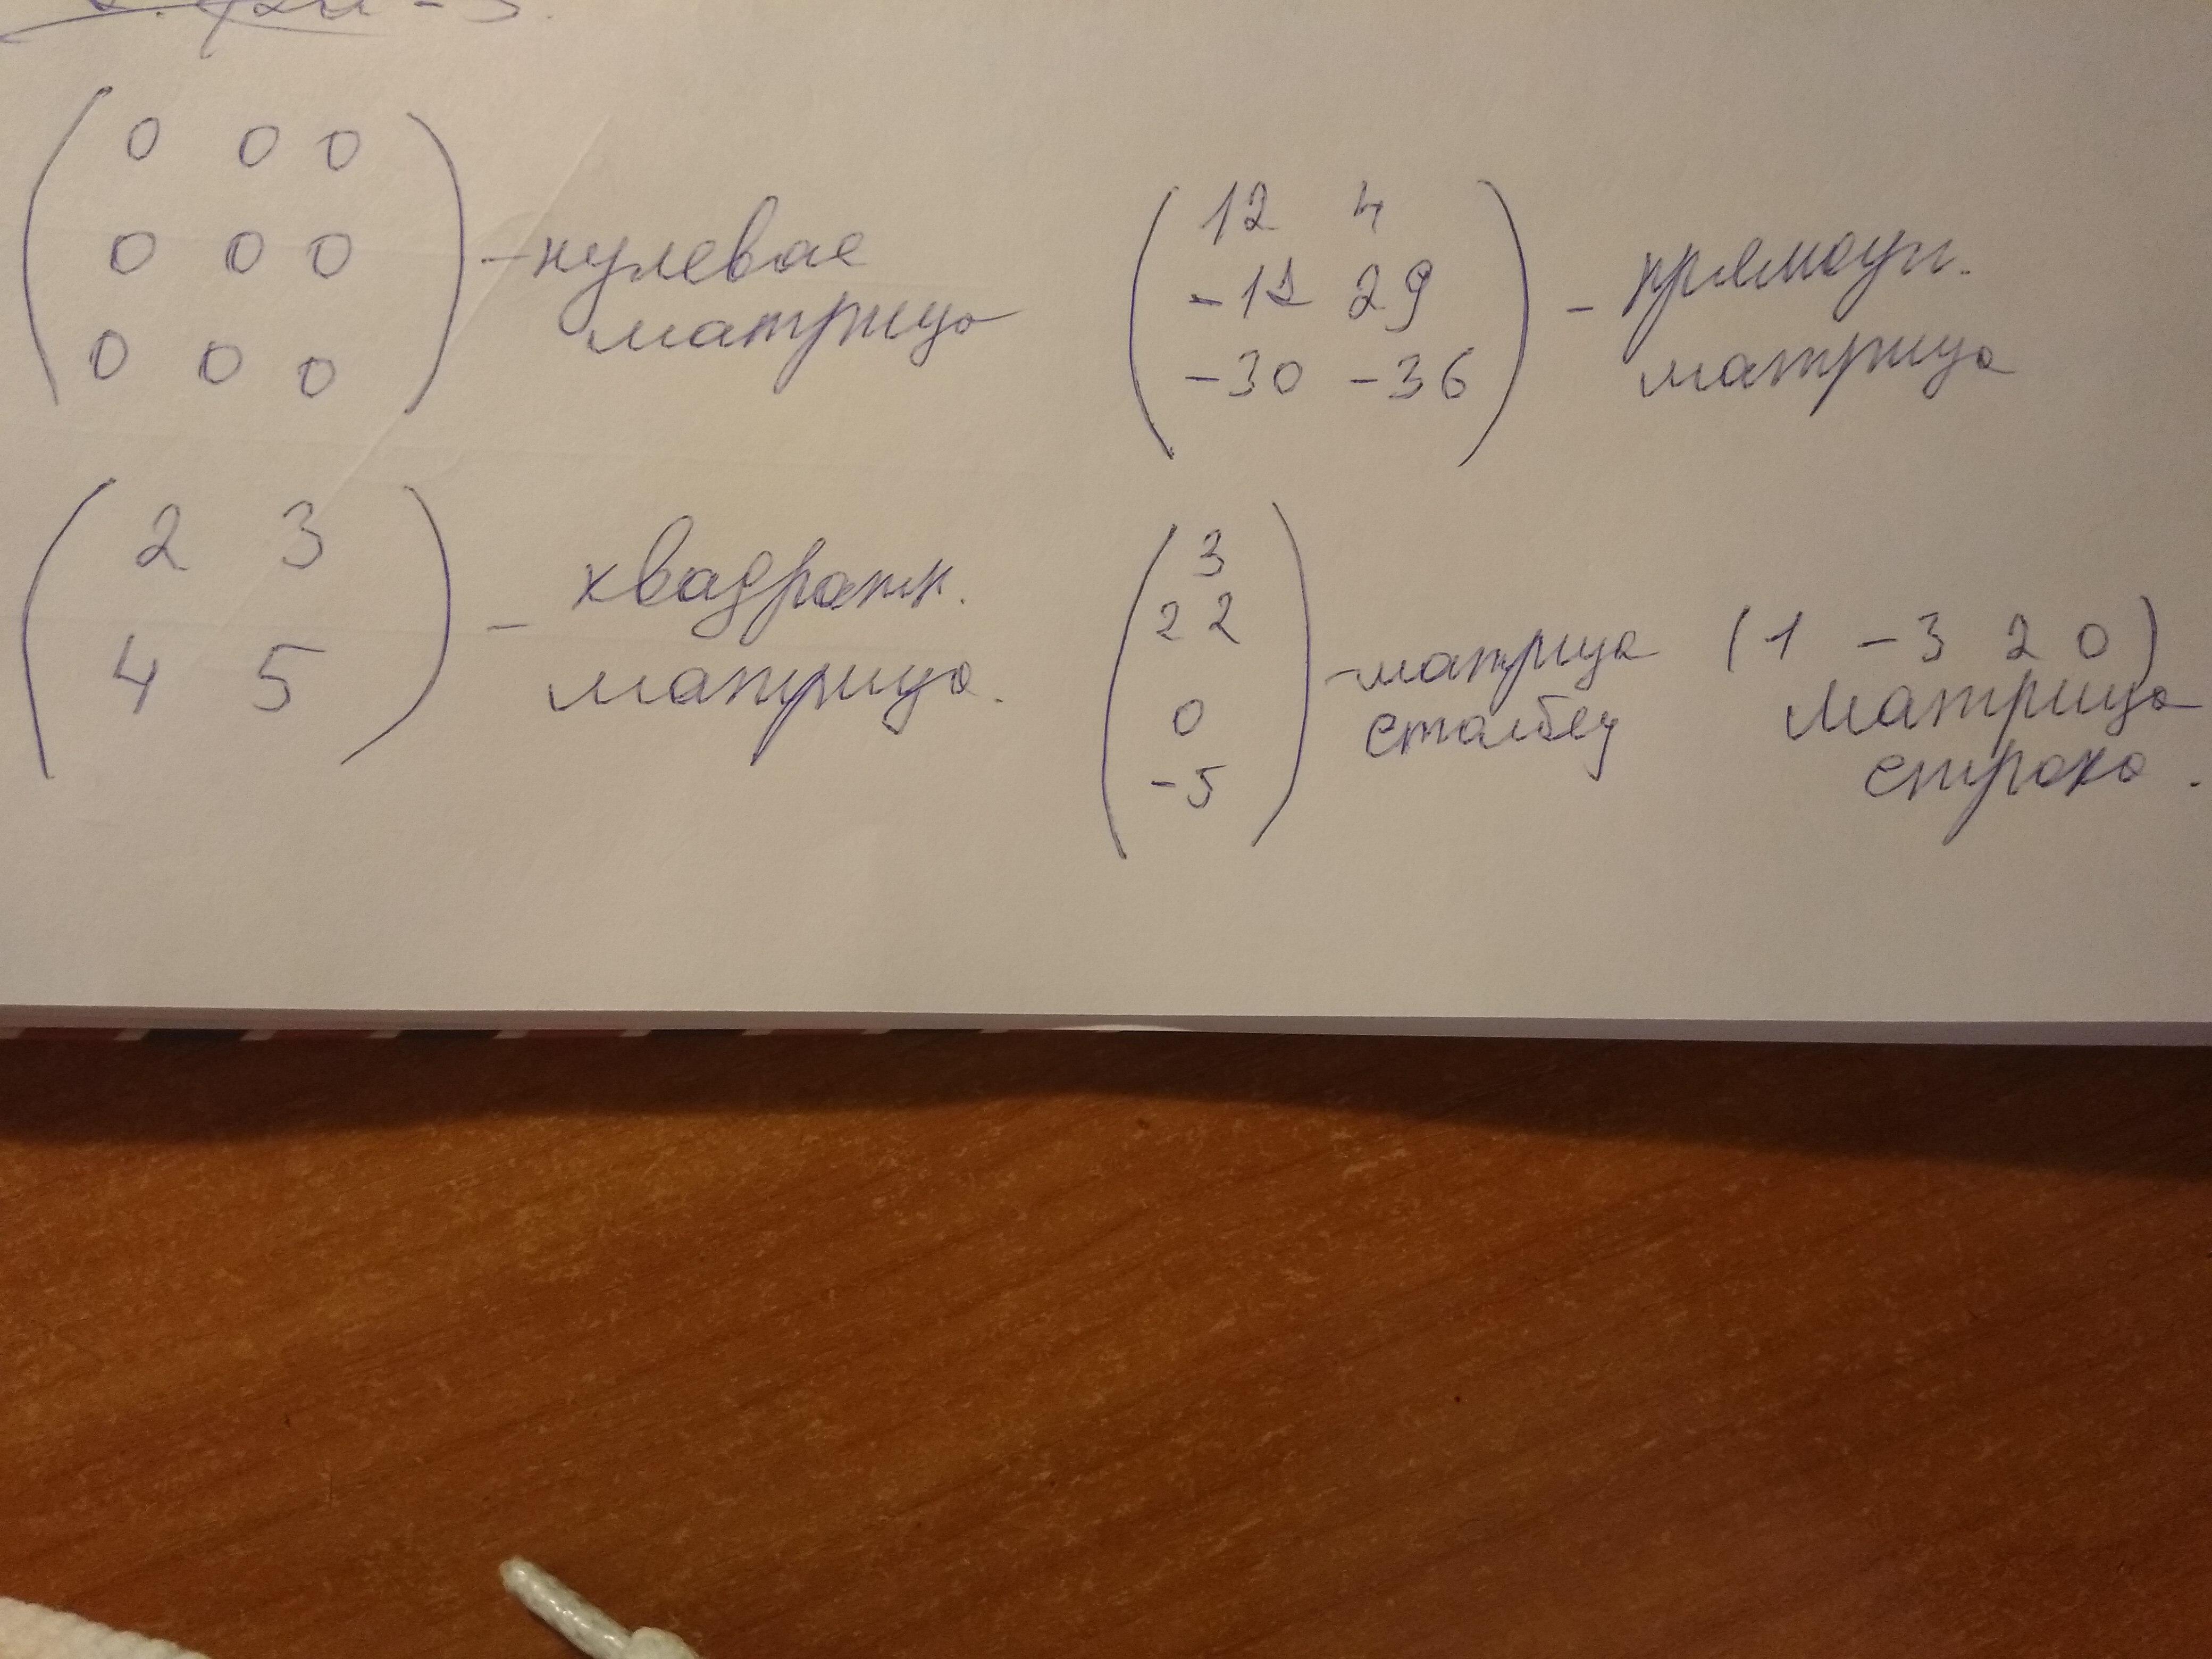 0 0 0
0 0 0
0 0 0
- нулевая
матрица
12 4
29
-30 -36
- прямоуг.
матрица
2 3
4 5
- квадратн.
матрица.
3
22
0
-5
- матрица
столбец
(1 -3 2 0)
матрица
строка.